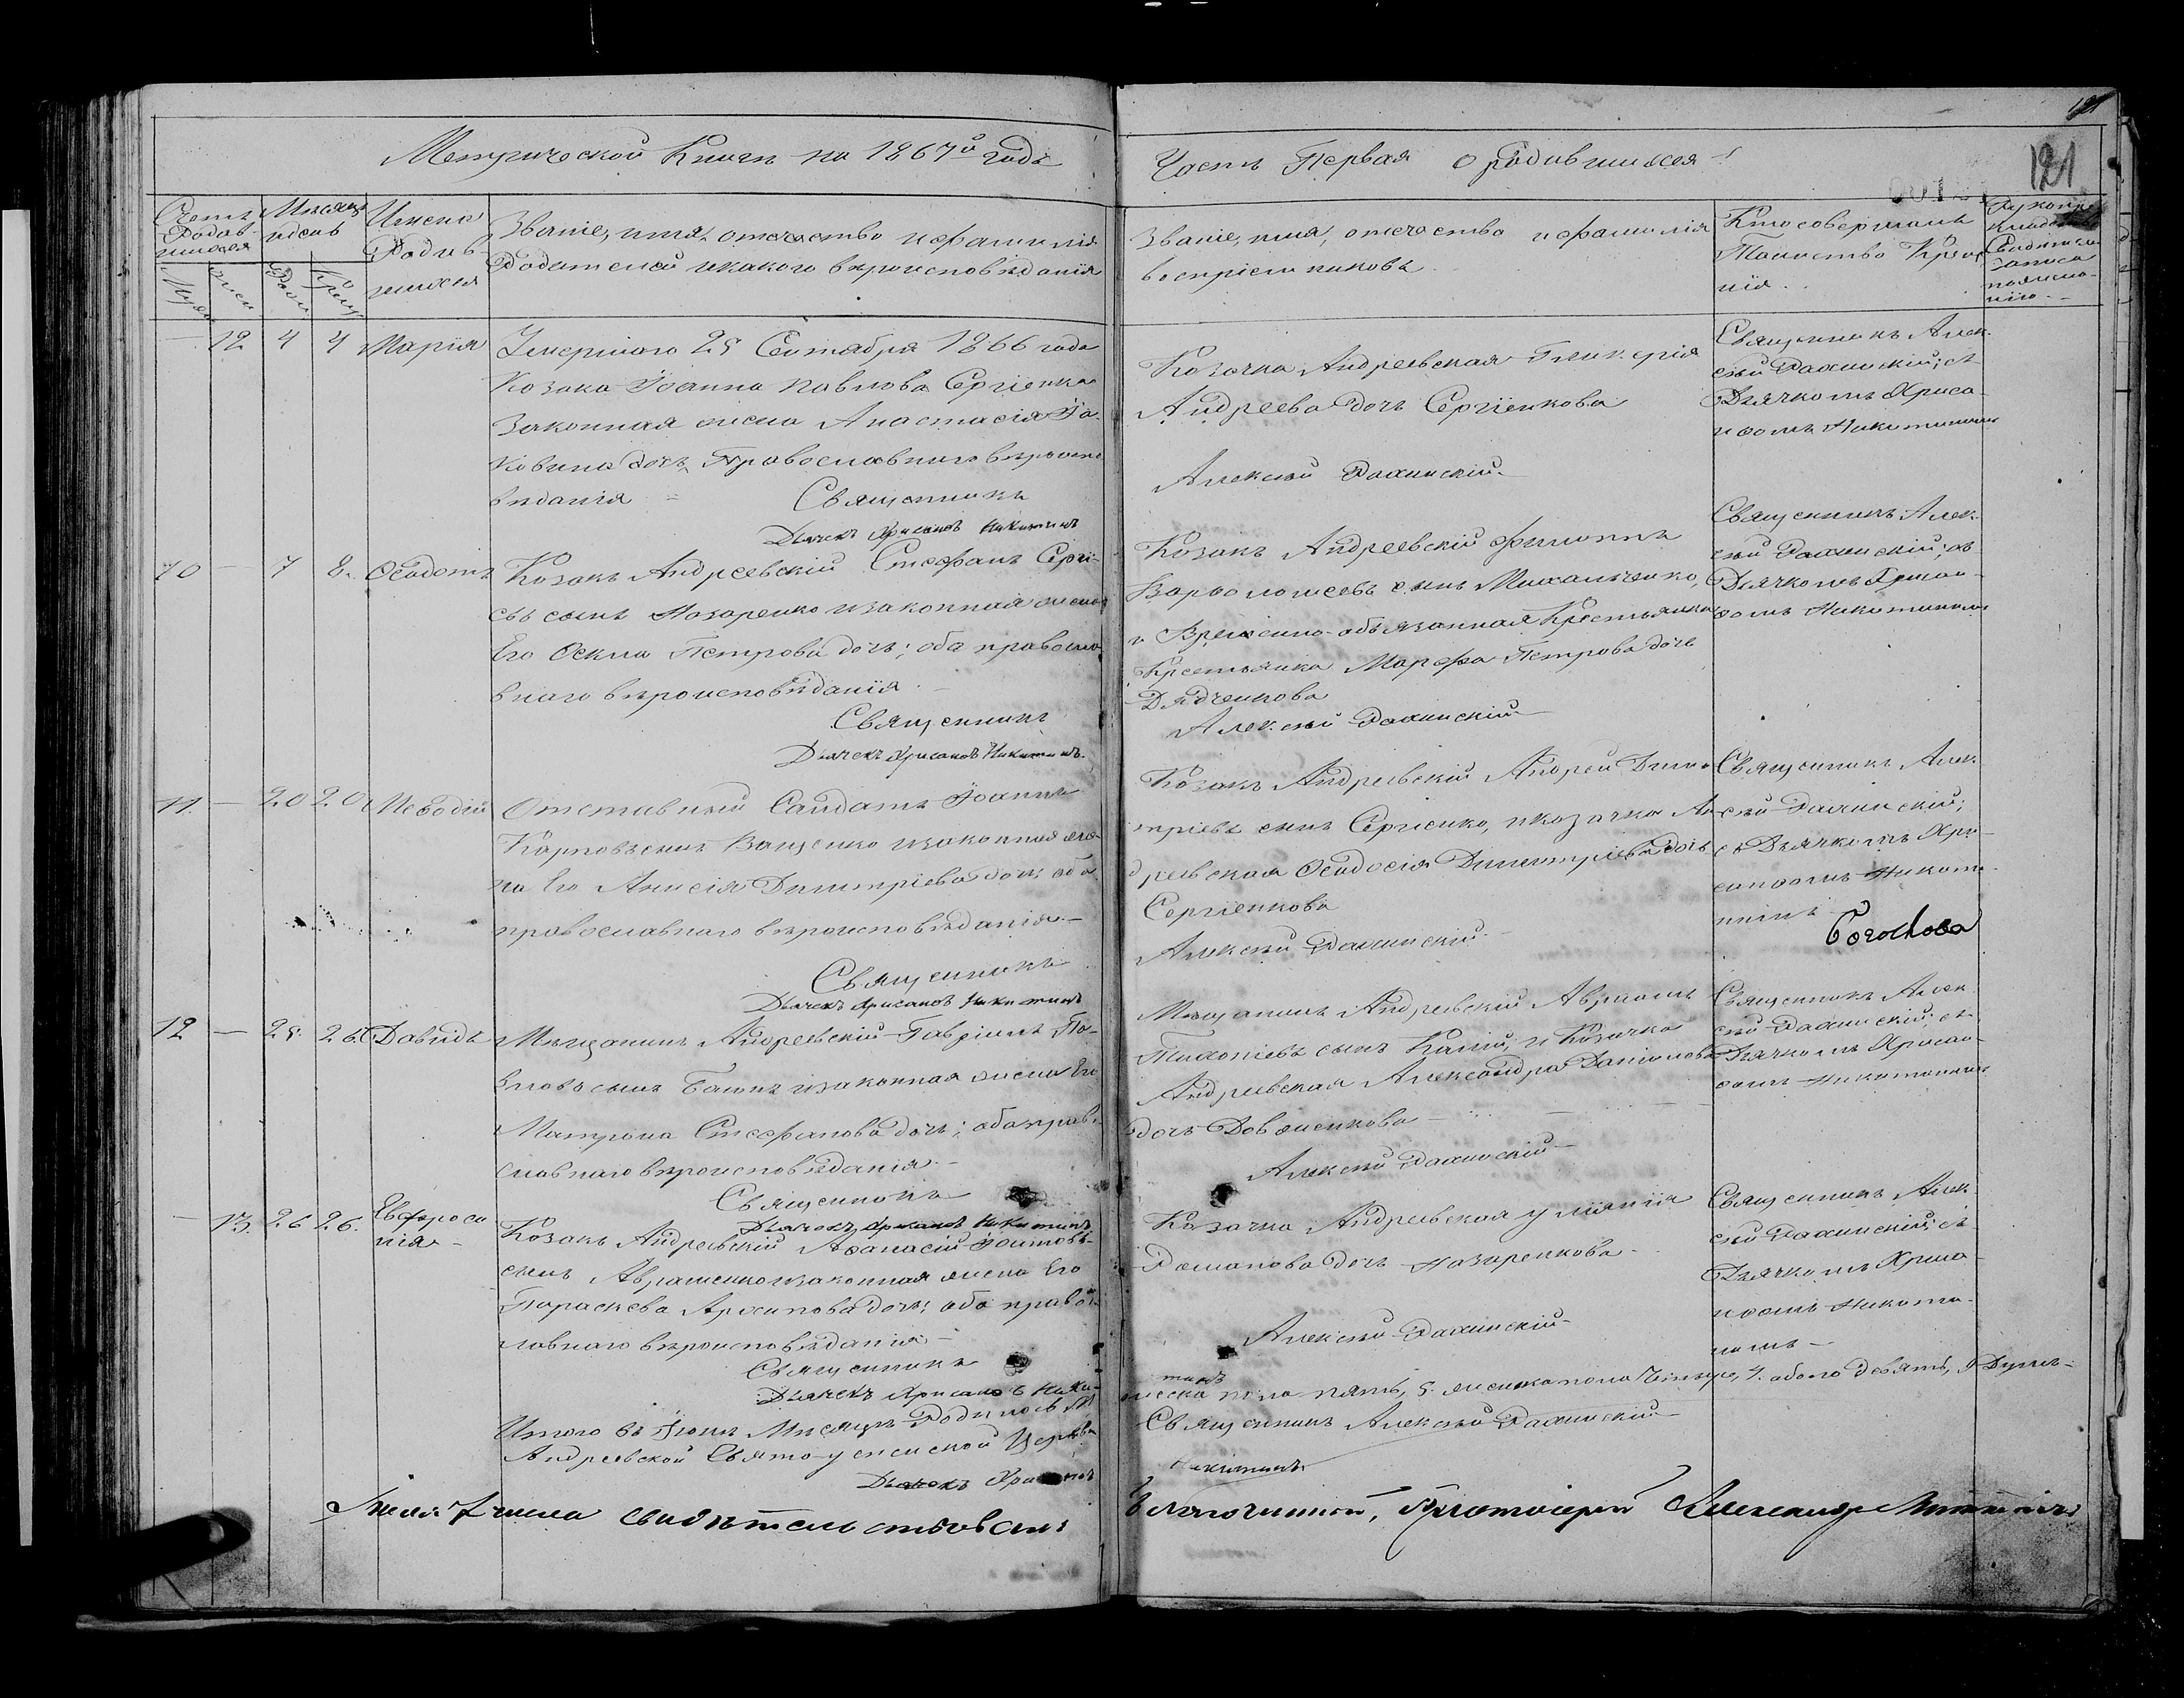 Метрической Книги на 1867й годъ
Часть Первая о родившихся
121
Счетъ Родившихся
Мѣсяцъ и день
Имена Родившихся
Званіе, имя, отечество и фамилія
Родителей и какого вѣроисповѣданія
Званіе, имя, отечество и фамилія
воспріемниковъ
Кто совершалъ
Таинство Креще
нія
12 4 4 Марія
Умершаго 25 Сентября 1866 года
Козака Іоанна Павлова Сергіенка
Законная жена Анастасія Іа
ковина дочь, Православнаго вѣроиспо
вѣданія
Священникъ
Дьячекъ Хрисанфъ Никитинъ
Козачка Андреевская Гликерія
Андреева дочь Сергіенкова
Алексѣй Рахинскій
Священникъ Алек
сѣй Рахинскій; съ
Дьячкомъ Хриса
нфомъ Никитинымъ
10 — 7 8. Ѳеодотъ
Козакъ Андреевскій Стефанъ Сергі
евъ сынъ Назаренко и законная жена
Его Ѳекла Петрова дочь; оба правосла
внаго вѣроисповѣданія
Священникъ
Дьячекъ Хрисанфъ Никитинъ.
Козакъ Андреевскій Филиппъ
Варфоломеевъ сынъ Михальченко,
и Временно-обязанная Крестьянка
Крестьянка Марфа Петрова дочь
Дядченкова
Алексѣй Рахинскій
Священникъ Алек
сѣй Рахинскій; съ
Дьячкомъ Хрисан
фомъ Никитинымъ
11. — 20 20 Меѳодій
Отставный Салдатъ Іоаннъ
Карповъ сынъ Ващенко и законная же
на Его Анисія Димитріева дочь оба
православнаго вѣроисповѣданія.—
Священникъ
Дьячекъ Хрисанфъ Никитинъ
Козакъ Андреевскій Андрей Дими
тріевъ сынъ Сергіенко, и козачка Ан
дреевская Ѳеодосія Димитріева дочь
Сергіенкова
Алексѣй Рахинскій
Священникъ Алек
сѣй Рахинскій;
съ Дьячкомъ Хри
санфомъ Никити
нымъ
12 — 25. 26. Давидъ
Мѣщанинъ Андреевскій Гавріилъ Па
вловъ сынъ и законная жена Его
Матрона Стефанова дочь; оба право
славнаго вѣроисповѣданія.—
Священникъ
Дьячекъ Хрисанфъ Никитинъ
Мѣщанинъ Андреевскій Авраамъ
сынъ и Козачка
Андреевская Александра Даніилова
дочь Довженкова
Алексѣй Рахинскій
Священникъ Алек
сѣй Рахинскій; съ
Дьячкомъ Хрисан
фомъ Никитинымъ
— 13. 26 26. Евфроси
нія
Козакъ Андреевскій Аѳанасій
сынъ Авраменко и законная жена Его
Параскева Архипова дочь; оба правос
лавнаго вѣроисповѣданія—
Священникъ
Дьячекъ Хрисанфъ Ники
тинъ
Козачка Андреевская Уліянія
Романова дочь Назаренкова
Алексѣй Рахинскій
Священникъ Алек
сѣй Рахинскій; съ
Дьячкомъ Хриса
нфомъ Никити
нымъ—
Итого въ Іюнѣ Мѣсяцѣ Родилось М
ужеска пола пять, 5. женска пола Четыре, 4. обоего девять, 9 Душъ.
Андреевской Свято-Успенской Церкви
Священникъ Алексѣй Рахинскій
Дьячекъ Хрисанфъ
Никитинъ
Іюля 7 числа свидѣтельствовалъ
Благочинный, Протоіерей Александръ